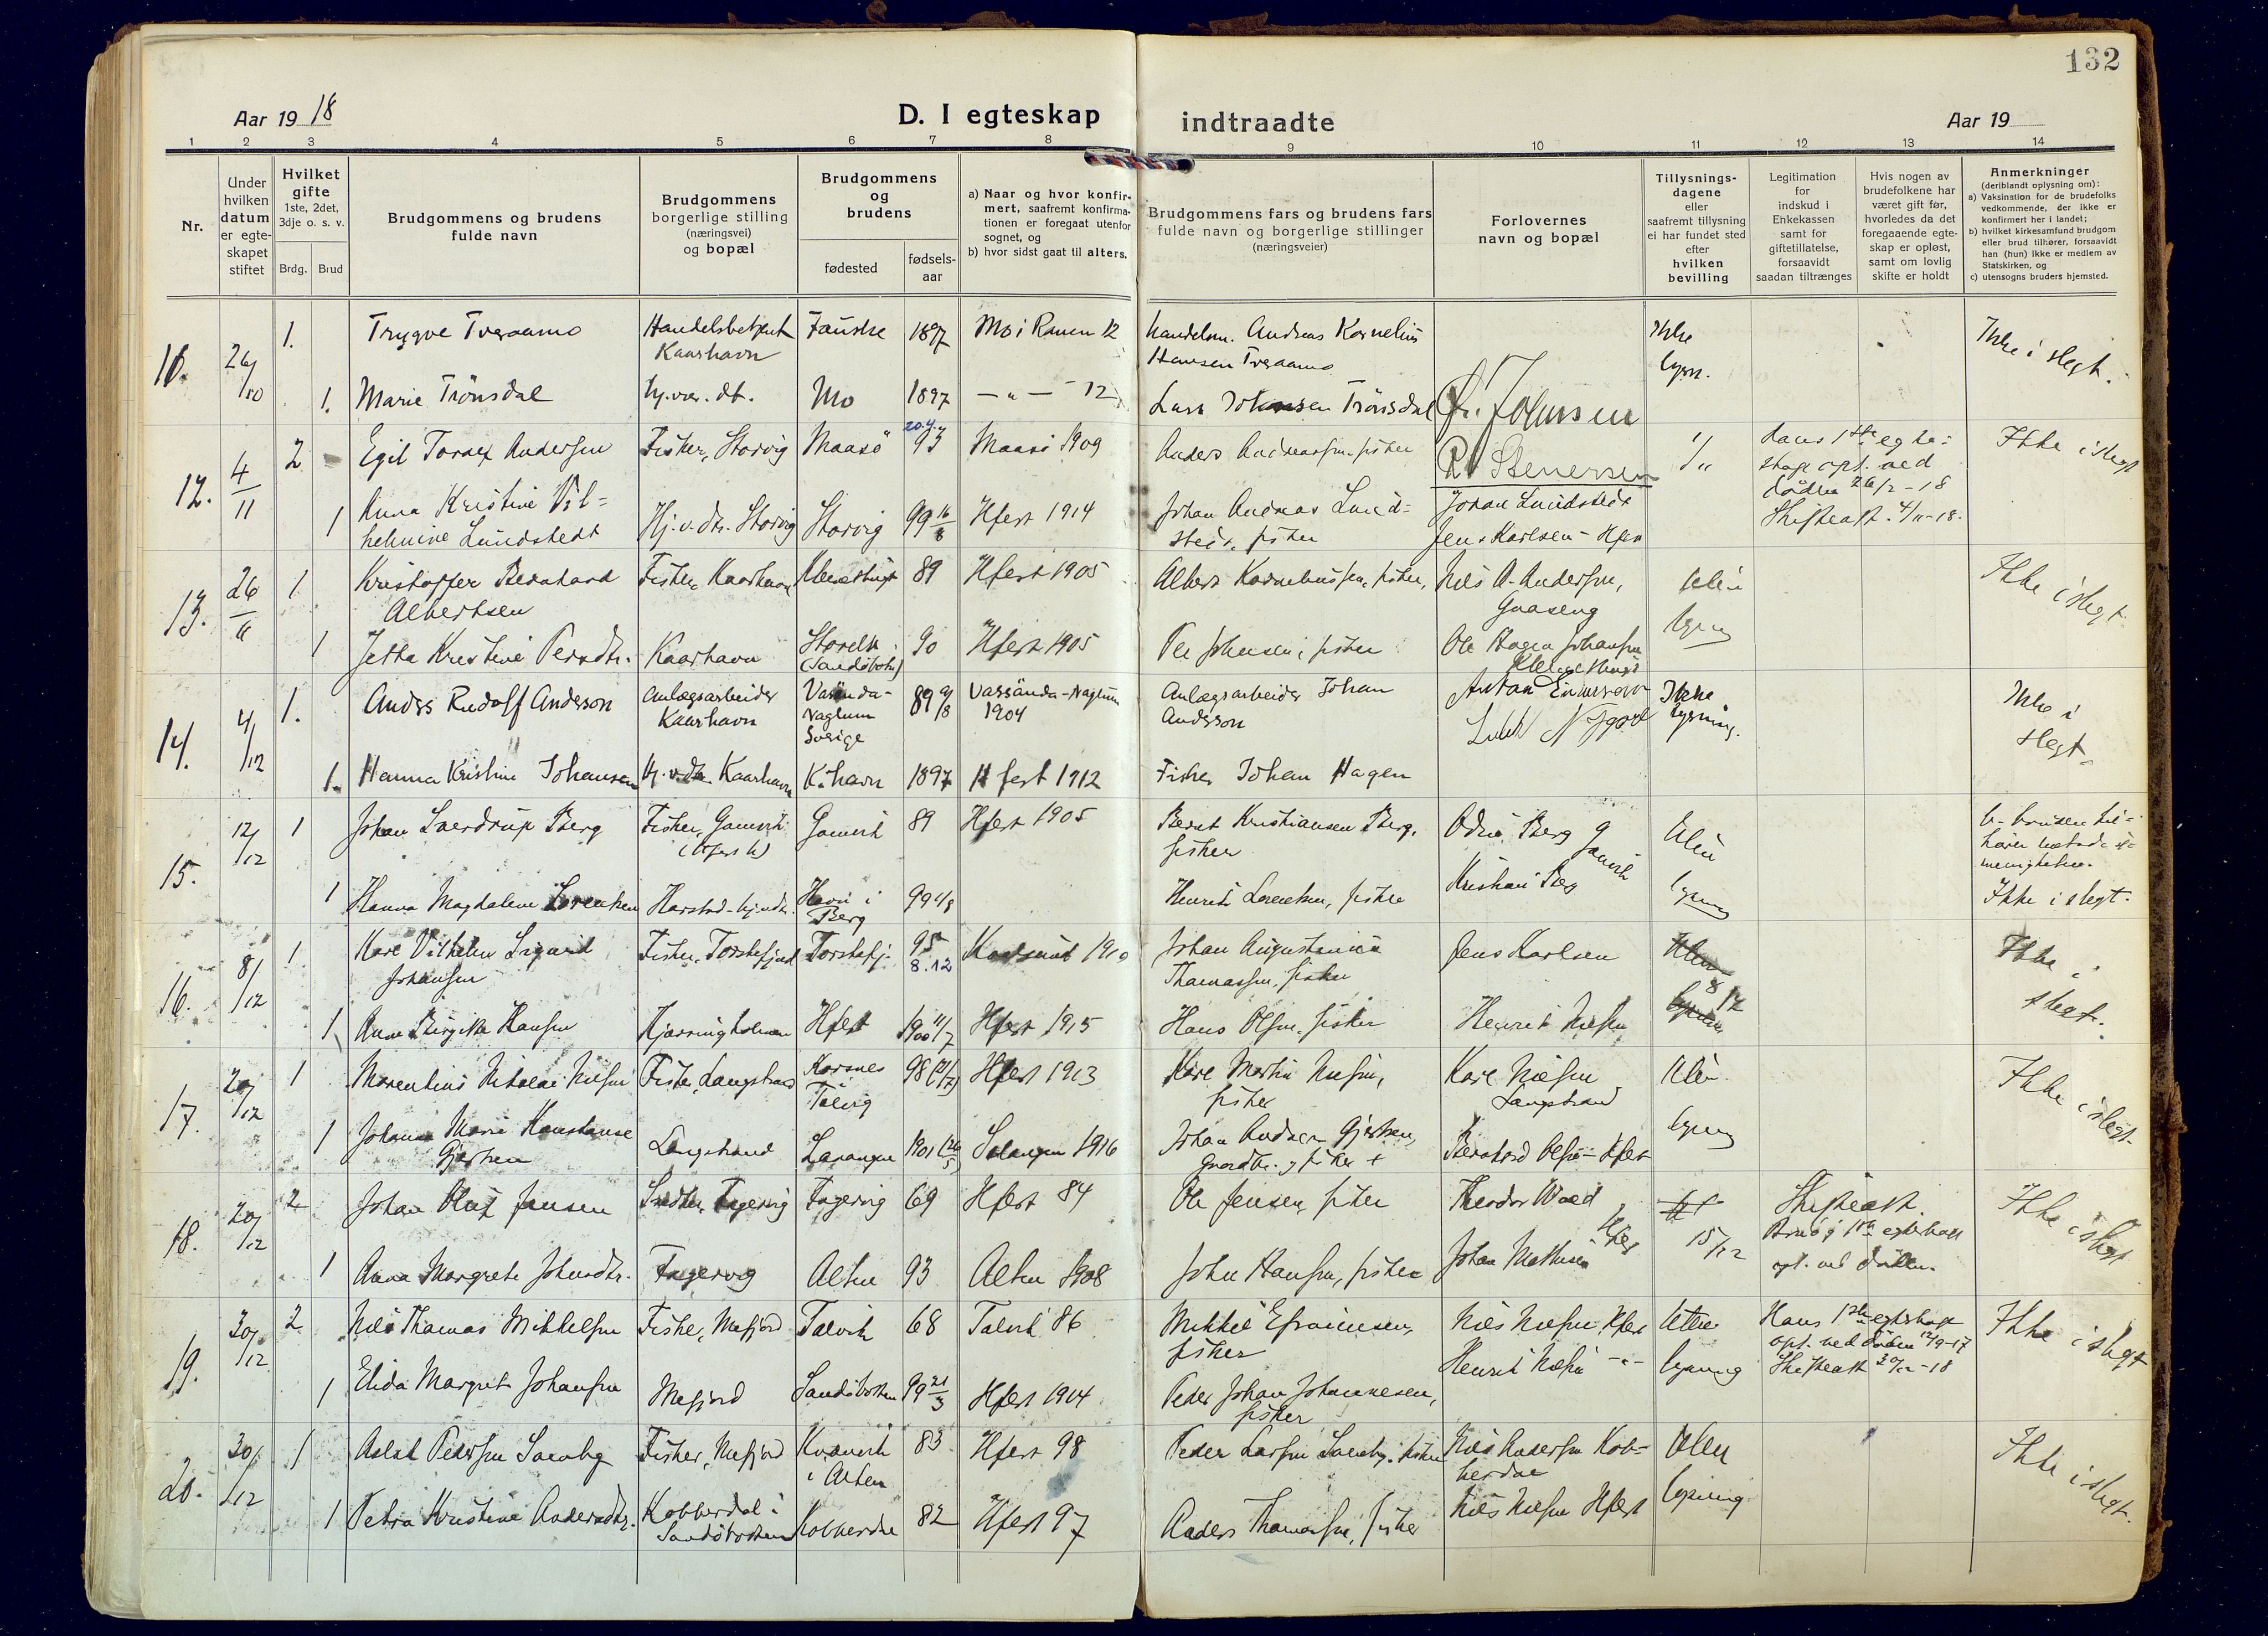 132
Aar 1918
D. I egteskap indtraadte
Aar 19
1 2 3 4 5 6 7 8 9 10 11 12 13 14
Nr.
Under
hvilken
datum
er egte-
skapet
stiftet
Hvilket
gifte
1ste, 2det,
3dje o. s. v.
Brdg. Brud
Brudgommens og brudens
fulde navn
Brudgommens
borgerlige stilling
(næringsvei)
og bopæl
Brudgommens
og
brudens
fødested
fødsels-
aar
a) Naar og hvor konfir-
mert, saafremt konfirma-
tionen er foregaat utenfor
sognet, og
b) hvor sidst gaat til alters.
Brudgommens fars og brudens fars
fulde navn og borgerlige stillinger
(næringsveier)
Forlovernes
navn og bopæl
Tillysnings-
dagene
eller
saafremt tillysning
ei har fundet sted
efter
hvilken
bevilling
Legitimation
for
indskud i
Enkekassen
samt for
giftetillatelse,
forsaavidt
saadan tiltrænges
Hvis nogen av
brudefolkene har
været gift før,
hvorledes da det
foregaaende egte-
skap er opløst,
samt om lovlig
skifte er holdt
Anmerkninger
(deriblandt oplysning om):
a) Vaksination for de brudefolks
vedkommende, der ikke er
konfirmert her i landet;
b) hvilket kirkesamfund brudgom
eller brud tilhører, forsaavidt
han (hun) ikke er medlem av
Statskirken, og
c) utensogns bruders hjemsted.
26/10 1. Trygve Tveraamo Handelsbetjent Fauske 1897 Mo i Ranen 12 Handelsm. Andreas Kornelius Ikke Ikke i slegt.
Kaarhavn Hansen Tveraamo lysn.
1. Marie Trönsdal Hj.vær. dt. Mo 1897 — " — 12 Lars Johansen Trönsdal Johnsen
12. 4/11 2 Egil Andersen Fisker, Storvig Maasö 93 Maasö 1909 Anders Andreassen fisker Stenersen Hans 1ste egte- Ikke i slegt
skap opl. ved
døden 26/2-18
Skifteatt. 4/11-18.
1 Anna Kristine Vil- Hj.v.dtr. Storvig Storvig 99 16/8 Hfest 1914 Johan Andreas Lund- Johan Lundstedt
helmine Lundstedt stedt, fisker Jens Karlsen - Hfest
13. 26/11 1 Kristoffer Bernhard Fisker, Kaarhavn 89 Hfest 1905 Albert Korneliussen, fisker, Nils A. Andersen, Uten Ikke i slegt
Albertsen Gaaseng
1 Jetta Kristine Persdtr. Kaarhavn (Sandöbotn) 90 Hfest 1905 Per Johnsen, fisker Ole Hagen Johansen lysning
14. 4/12 1. Anders Rudolf Anderson Anlægsarbeider Vasända- 89 9/8 Vassända-Naglum Anlægsarbeider Johan Ikke Ikke i
Kaarhavn Naglum 1904 Anderson lysning. slegt.
Sverige
1. Hanna Kristine Johansen Hj.v.dtr. Kaarhavn K.havn 1897 Hfest 1912 Fisker Johan Hagen
15. 12/12 1 Johan Sverdrup Berg Fisker, Gamvik Gamvik 89 Hfest 1905 Bernt Kristiansen Berg, Odin Berg Gamvik Uten b. bruden til-
fisker hører metodist-
menigheten.
1 Hanna Magdalene Lorentzen Harstad - hj.v.dtr. Havn i 99 Henrik Lorentzen, fisker Kristian Berg lysning Ikke i slegt.
Berg
16. 8/12 1 Karl Vilhelm Sigurd Fisker, Torskefjord Torskefj. 95 Kvalsund 1910 Johan Augustinius Jens Karlsen Ikke i
Johansen 8.12 Thomassen, fisker slegt.
1 Anna Birgitte Hansen Kjerringholmen Hfest 1900 11/7 Hfest 1915 Hans Olsen, fisker Henrik Nilsen
17. 20/12 1 Morentius Nikolai Nilsen Fisker, Langstrand Korsnes 98 Hfest 1913 Karl Martin Nilsen, Karl Nilsen Uten Ikke i slegt
Talvig fisker Langstrand
1 Johanna Marie Konstanse Langstrand Lavangen 1901 Salangen 1916 Johan Andser Gjertsen, Bernhard Olsen - Hfest lysning
Gjertsen Gaardbr. og fisker +
18. 20/12 2 Johan Oluf Jensen Fagervig Fagervig 69 Hfest 84 Ole Jensen, fisker Theodor Wold Hfest Skifteatt. Ikke i slegt
15/12 egteskap
opl. ved døden.
1 Anna Margrete Johnsdtr. Fagervig Alten 93 Alten 1908 John Hansen, fisker Johan Mathisen
19. 30/12 2 Nils Thomas Mikkelsen Fisker, Mefjord Talvik 68 Talvik 86 Mikkel Efraimsen, Nils Nilsen Hfest Uten Hans 1ste egteskap Ikke i slegt
fisker opl. ved døden 12/9-17
1 Elida Margret Johansen Mefjord Sandöbotten 99 21/3 Hfest 1914 Peder Johan Johannesen, Henrik Nilsen -"- lysning Skifteatt 30/12-18
fisker
20. 30/12 1 Aslak Pedersen Saraby Fisher, Mefjord Kviævik 83 Hfest 98 Peder Larsen Saraby, fisker Nils Andersen Kob- Uten Ikke i slegt.
i Alten berdal
1 Petra Kristine Andersdtr. Kobberdal i Kobberdal 82 Hfest 97 Anders Thomassen, fisker Nils Nilsen Hfest lysning
Sandöbotten